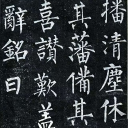 播清塵休
其藩備其
喜讃歎盖
辭銘曰